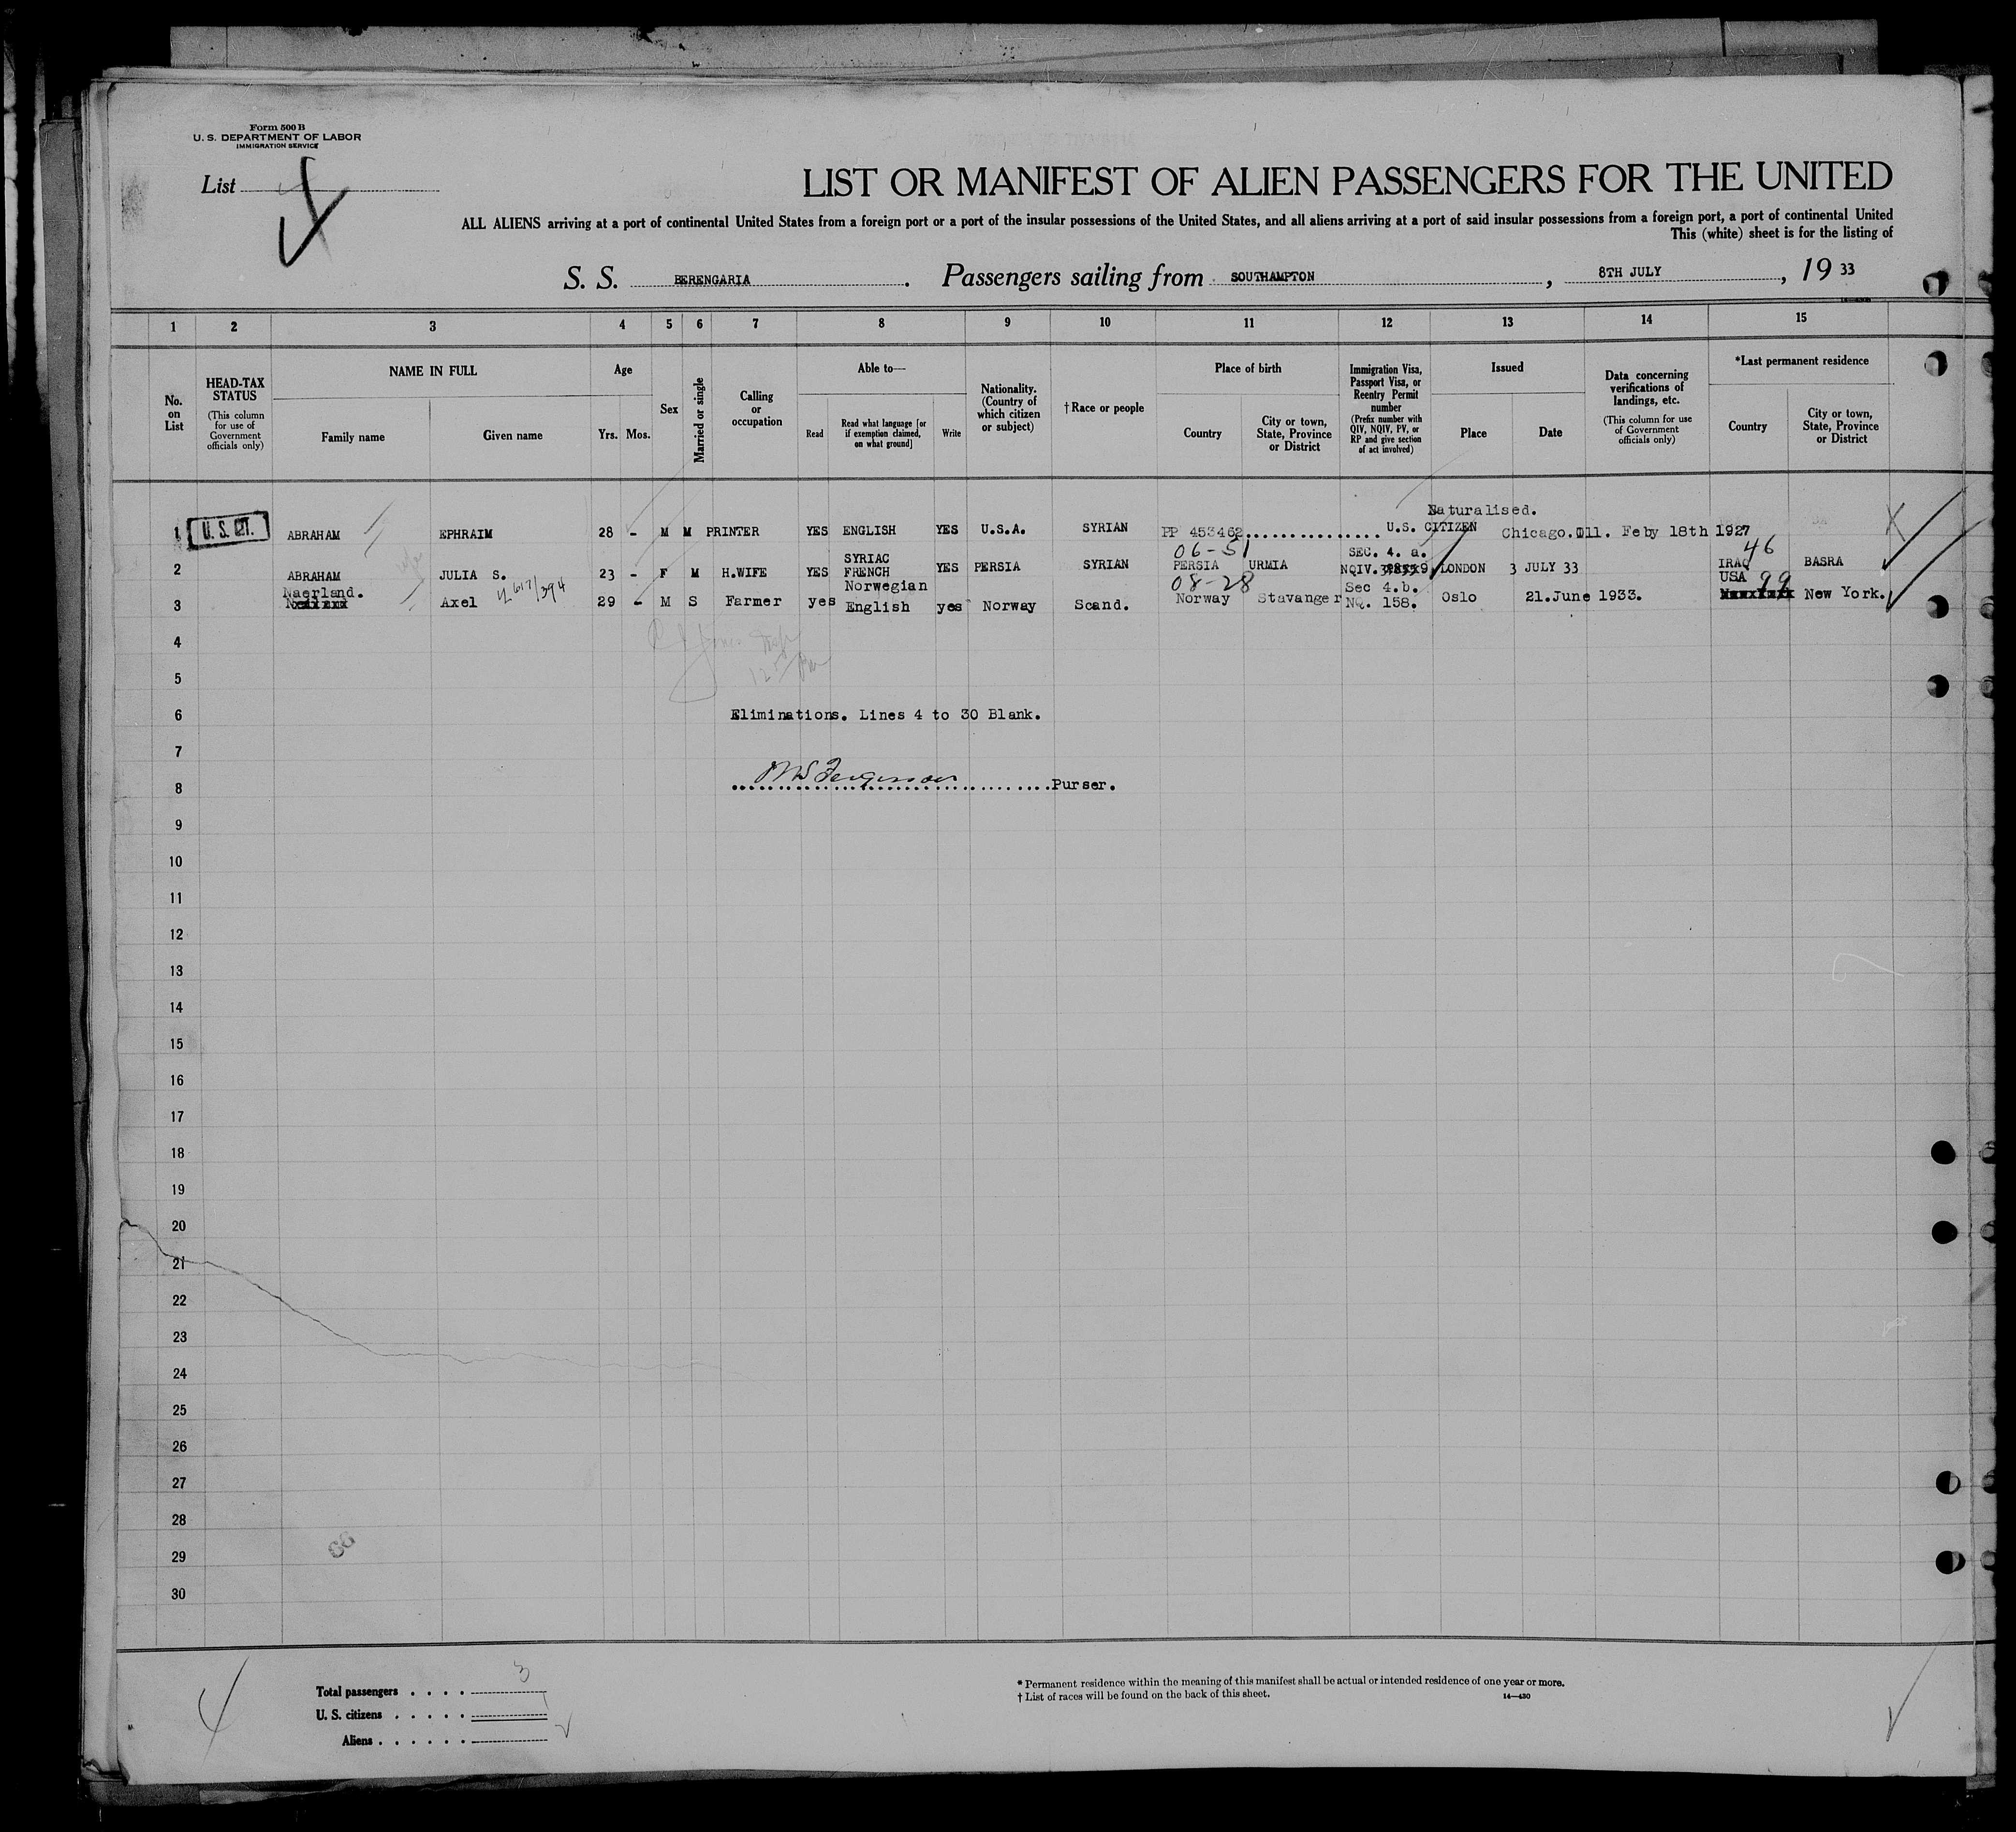 Form 500 B
U. S. DEPARTMENT OF LABOR
IMMIGRATION SERVICE
List
LIST OR MANIFEST OF ALIEN PASSENGERS FOR THE UNITED
ALL ALIENS arriving at a port of continental United States from a foreign port or a port of the insular possessions of the United States, and all aliens arriving at a port of said insular possessions from a foreign port, a port of continental United
This (white) sheet is for the listing of
S. S. BERENGARIA . Passengers sailing from SOUTHAMPTON , 8TH JULY , 19 33
1 2 3 4 5 6 7 8 9 10 11 12 13 14 15
No. on List
HEAD-TAX STATUS (This column for use of Government officials only)
NAME IN FULL
Family name Given name
Age
Yrs. Mos.
Sex
Married or single
Calling or occupation
Able to—
Read Read what language [or if exemption claimed, on what ground] Write
Nationality. (Country of which citizen or subject)
†Race or people
Place of birth
Country City or town, State, Province or District
Immigration Visa, Passport Visa, or Reentry Permit number (Prefix number with QIV, NQIV, PV, or RP and give section of act involved)
Issued
Place Date
Data concerning verifications of landings, etc. (This column for use of Government officials only)
*Last permanent residence
Country City or town, State, Province or District
Naturalised.
1 U. S. CIT. ABRAHAM EPHRAIM 28 - M M PRINTER YES ENGLISH YES U.S.A. SYRIAN PP 453462............... U.S. CITIZEN Chicago.Ill. Feby 18th 1927
SYRIAC 06-51 SEC. 4. a. 46
2 ABRAHAM JULIA S. 23 - F M H.WIFE YES FRENCH YES PERSIA SYRIAN PERSIA URMIA NQIV. LONDON 3 JULY 33 IRAQ BASRA
Naerland. 4-617/394 Norwegian 08-28 Sec 4.b. USA 99
3 Axel 29 - M S Farmer yes English yes Norway Scand. Norway Stavanger NQ. 158. Oslo 21.June 1933. New York.
4
5
6 Eliminations. Lines 4 to 30 Blank.
7
8 Purser.
9
10
11
12
13
14
15
16
17
18
19
20
21
22
23
24
25
26
27
28
29
30
Total passengers . . . . 3
U. S. citizens . . . . . 1
Aliens . . . . . . 2
* Permanent residence within the meaning of this manifest shall be actual or intended residence of one year or more.
† List of races will be found on the back of this sheet.
14—430